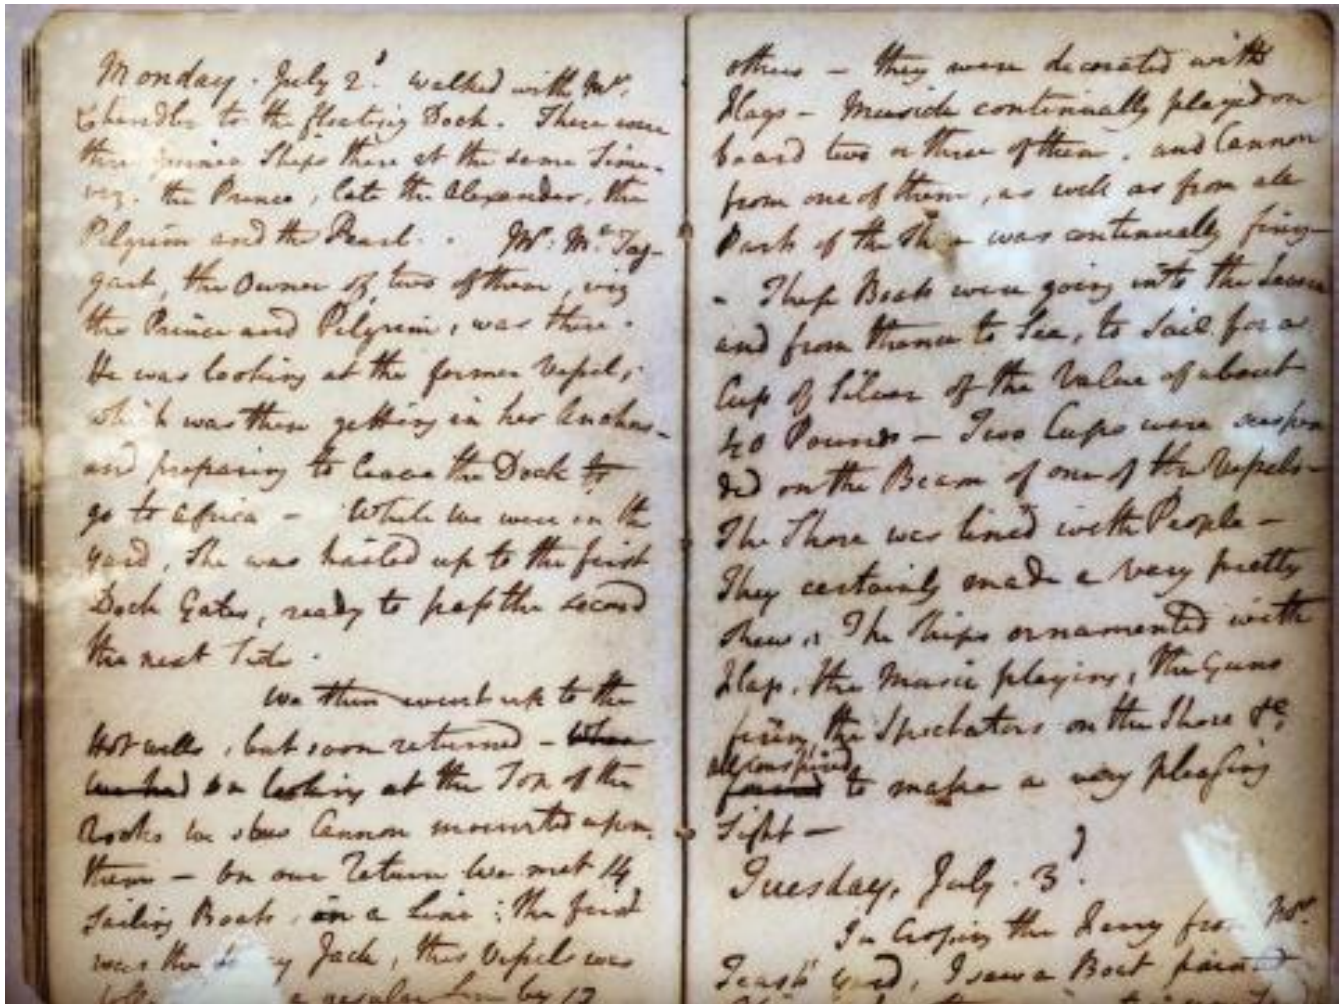 Monday. July 2d. walked with Mr.
Chandler to the floating Dock. There were
three Guinea Ships there at the same Time.
viz. the Prince, late the Alexander, the
Pilgrim and the Pearl. . Mr. Mc. Tag-
gart, the Owner of two of them, viz
the Prince and Pilgrim, was there.
He was looking at the former Vessel,
which was then getting in her Anchors
and preparing to leave the Dock to
go to Africa - While we were in the
Yard, She was hailed up to the first
Dock Gates, ready to pass the second
the next Tide.
We then went up to the
Hot wells, but soon returned - When
looking at the Top of the
Rocks we saw Cannon mounted upon
them - On our Return we met 14
Sailing Boats, in a Line: the first
was the Jack, this Vessel was
a regular by 12
others - they were decorated with
Flags - Musick continually played on
board two or three of them, and Cannon
from one of them, as well as from
Part of the was continually firing
- These Boats were going into the Severn
and from thence to Sea, to Sail for a
Cup of Silver of the Value of about
40 Pounds - Two Cups were suspen
ded on the Beam of one of the Vessels -
The Shore was lined with People -
They certainly made a very pretty
Shew :: The Ships ornamented with
Flags, the Music playing, the Guns
firing the Spectators on the Shore &c
all conspired
to make a very pleasing
Sight -
Tuesday, July. 3d.
In Crossing the Ferry from Mr.
Yard, I saw a Boat painted